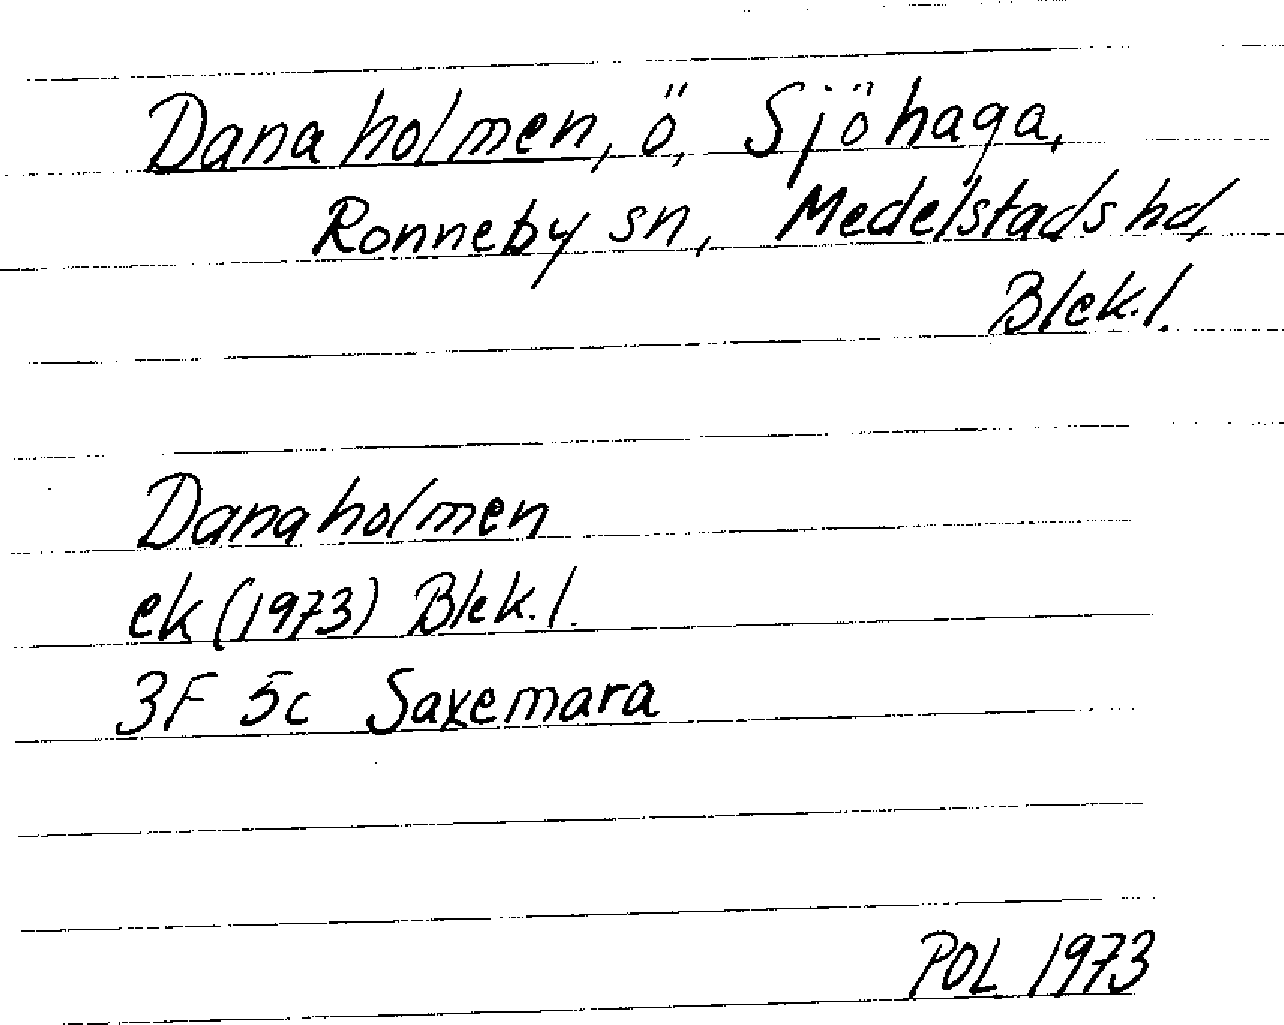 Danaholmen, ö, Sjöhaga,
Ronneby sn, Medelstads hd,
Blek. l.
Danaholmen
ek (1973) Blek. l.
3F 5c Saxemara
POL 1973